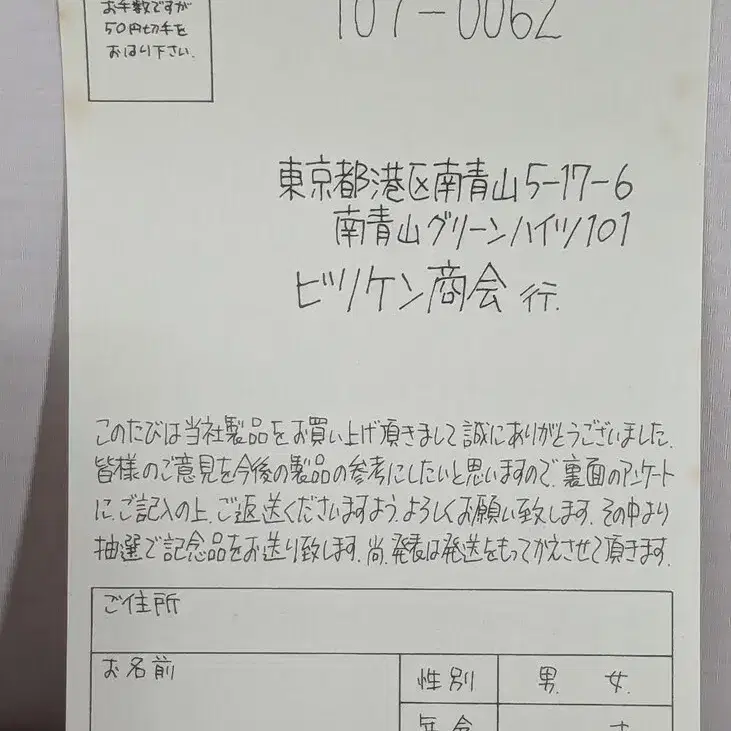 お手数ですが
50円切手を
おはり下さい.
107-0062
東京都港区南青山5-17-6
南青山グリーンハイツ101
ビリケン商会 行.
このたびは当社製品をお買い上げ頂きまして誠にありがとうございました.
皆様のご意見を今後の製品の参考にしたいと思いますので、裏面のアンケート
に、ご記入の上、ご返送くださいますよう、よろしくお願い致します. その中より
抽選で記念品をお送り致します. 尚、発表は発送をもってかえさせて頂きます.
ご住所
お名前
性別 男. 女.
年令 才